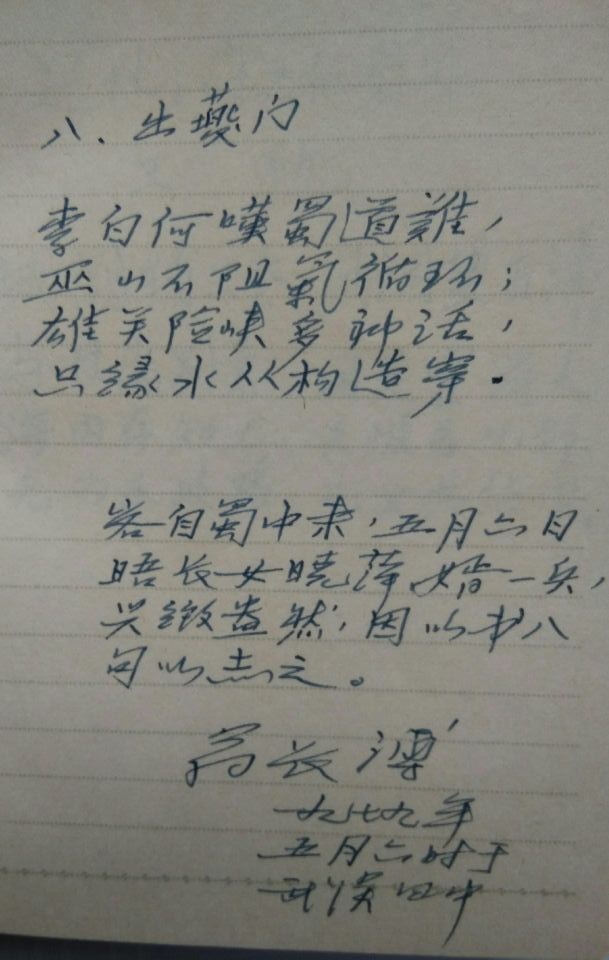 八、出夔门
李白何嘆蜀道難，
巫山不阻氣循环；
雄关险峡多神话，
只缘水从构造穿．
客自蜀中来，五月六日
晤长女晓萍婿一兵，
兴致盎然，因以书八
句以志之。
长溥
一九七九年
五月六时于
武汉四中